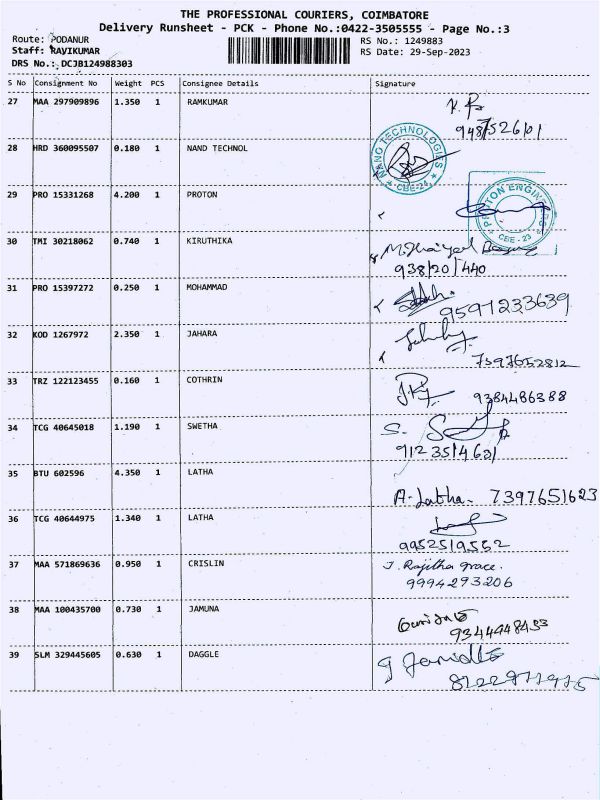 THE PROFESSIONAL COURIERS, COIMBATORE
Delivery Runsheet - PCK - Phone No.:0422-3505555 - Page No.:3
Route: PODANUR RS No.: 1249883
Staff: RAVIKUMAR RS Date: 29-Sep-2023
DRS No.: DCJB124988303
S No Consignment No Weight PCS Consignee Details Signature
27 MAA 297909896 1.350 1 RAMKUMAR
28 HRD 360095507 0.180 1 NAND TECHNOL
NANO TECHNOLOGIES
CBE-24
29 PRO 15331268 4.200 1 PROTON
PROTON ENGINEERS
CBE-23
30 TMI 30218062 0.740 1 KIRUTHIKA
938/20/440
31 PRO 15397272 0.250 1 MOHAMMAD
9597233639
32 KOD 1267972 2.350 1 JAHARA
7397652812
33 TRZ 122123455 0.160 1 COTHRIN
9384486388
34 TCG 40645018 1.190 1 SWETHA
S.
35 BTU 602596 4.350 1 LATHA
A. Latha. 7397651623
36 TCG 40644975 1.340 1 LATHA
9952519552
37 MAA 571869636 0.950 1 CRISLIN
J. Rajitha grace.
9994293206
38 MAA 100435700 0.730 1 JAMUNA
9344448453
39 SLM 329445605 0.630 1 DAGGLE